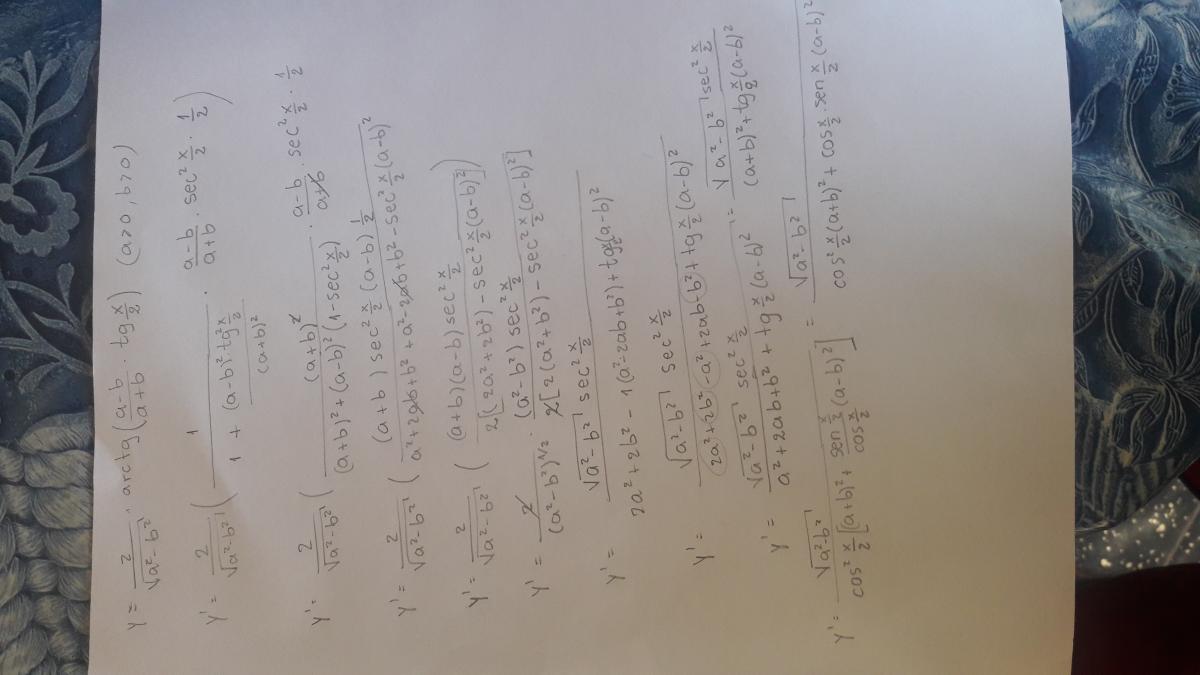 y = 2/√(a²-b²) · arctg(a-b/a+b · tg x/2) (a>0, b>0)
y' = 2/√(a²-b²) ( 1/(1 + (a-b)²·tg² x/2/(a+b)²) · a-b/a+b · sec² x/2 · 1/2 )
y' = 2/√(a²-b²) ( (a+b)²/((a+b)²+(a-b)²(1-sec² x/2)) · a-b/a+b · sec² x/2 · 1/2
y' = 2/√(a²-b²) ( (a+b) sec² x/2 (a-b) 1/2/(a²+2ab+b²+a²-2ab+b²-sec² x/2 (a-b)²
y' = 2/√(a²-b²) ( (a+b)(a-b) sec² x/2/(2[(2a²+2b²)-sec² x/2 (a-b)²]) )
y' = 2/(a²-b²)^1/2 · (a²-b²) sec² x/2/(2[2(a²+b²)-sec² x/2 (a-b)²])
y' = √(a²-b²) sec² x/2/(2a²+2b²-1(a²-2ab+b²)+tg x/2 (a-b)²)
y' = √(a²-b²) sec² x/2/(2a²+2b²-a²+2ab-b²+tg x/2 (a-b)²)
y' = √(a²-b²) sec² x/2/(a²+2ab+b²+tg x/2 (a-b)²) = √(a²-b²) sec² x/2/((a+b)²+tg x/2 (a-b)²)
y' = √(a²-b²)/(cos² x/2 [(a+b)²+ sen x/2/cos x/2 (a-b)²]) = √(a²-b²)/(cos² x/2 (a+b)²+cos x/2 · sen x/2 (a-b)²)